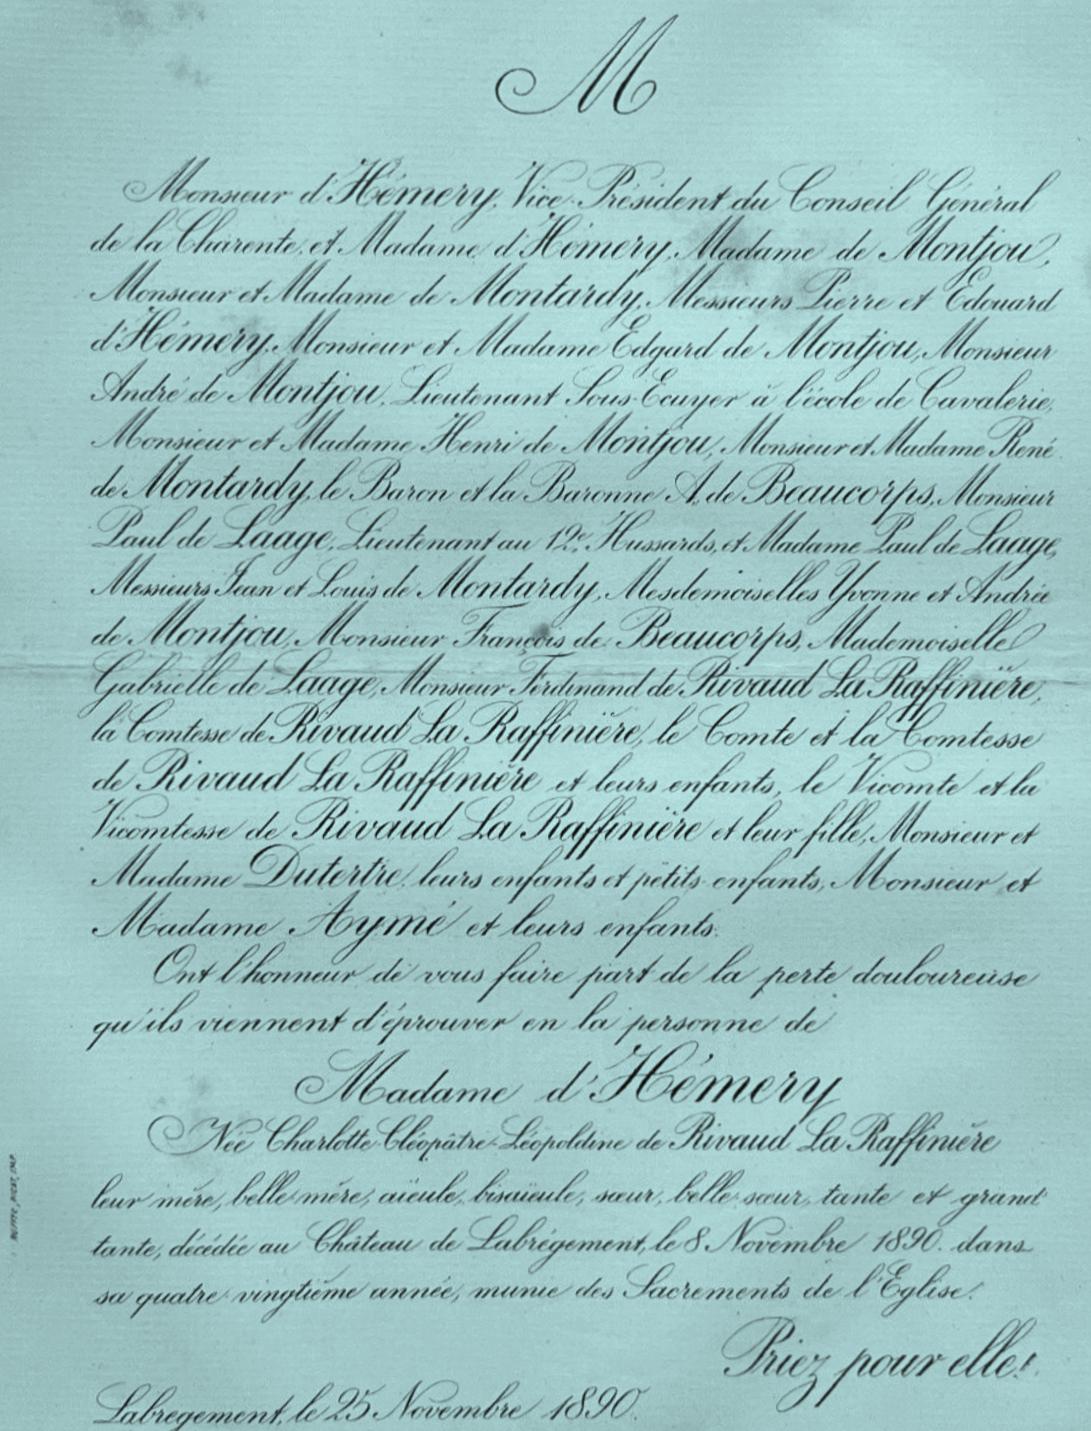 M
Monsieur d'Hémery, Vice-Président du Conseil Général
de la Charente, et Madame d'Hémery, Madame de Montjou,
Monsieur et Madame de Montardy, Messieurs Pierre et Edouard
d'Hémery, Monsieur et Madame Edgard de Montjou, Monsieur
André de Montjou, Lieutenant Sous-Ecuyer à l'école de Cavalerie,
Monsieur et Madame Henri de Montjou, Monsieur et Madame René
de Montardy, le Baron et la Baronne A. de Beaucorps, Monsieur
Paul de Laage, Lieutenant au 12e Hussards, et Madame Paul de Laage,
Messieurs Jean et Louis de Montardy, Mesdemoiselles Yvonne et Andrée
de Montjou, Monsieur François de Beaucorps, Mademoiselle
Gabrielle de Laage, Monsieur Ferdinand de Rivaud La Raffinière,
la Comtesse de Rivaud La Raffinière, le Comte et la Comtesse
de Rivaud La Raffinière et leurs enfants, le Vicomte et la
Vicomtesse de Rivaud La Raffinière et leur fille, Monsieur et
Madame Dutertre, leurs enfants et petits-enfants, Monsieur et
Madame Aymé et leurs enfants.
Ont l'honneur de vous faire part de la perte douloureuse
qu'ils viennent d'éprouver en la personne de
Madame d'Hémery
Née Charlotte-Cléopâtre-Léopoldine de Rivaud La Raffinière
leur mère, belle-mère, aïeule, bisaïeule, sœur, belle-sœur, tante et grand'
tante, décédée au Château de Labrégement, le 8 Novembre 1890. dans
sa quatre-vingtième année, munie des Sacrements de l'Eglise.
Priez pour elle!
Labregement, le 25 Novembre 1890.